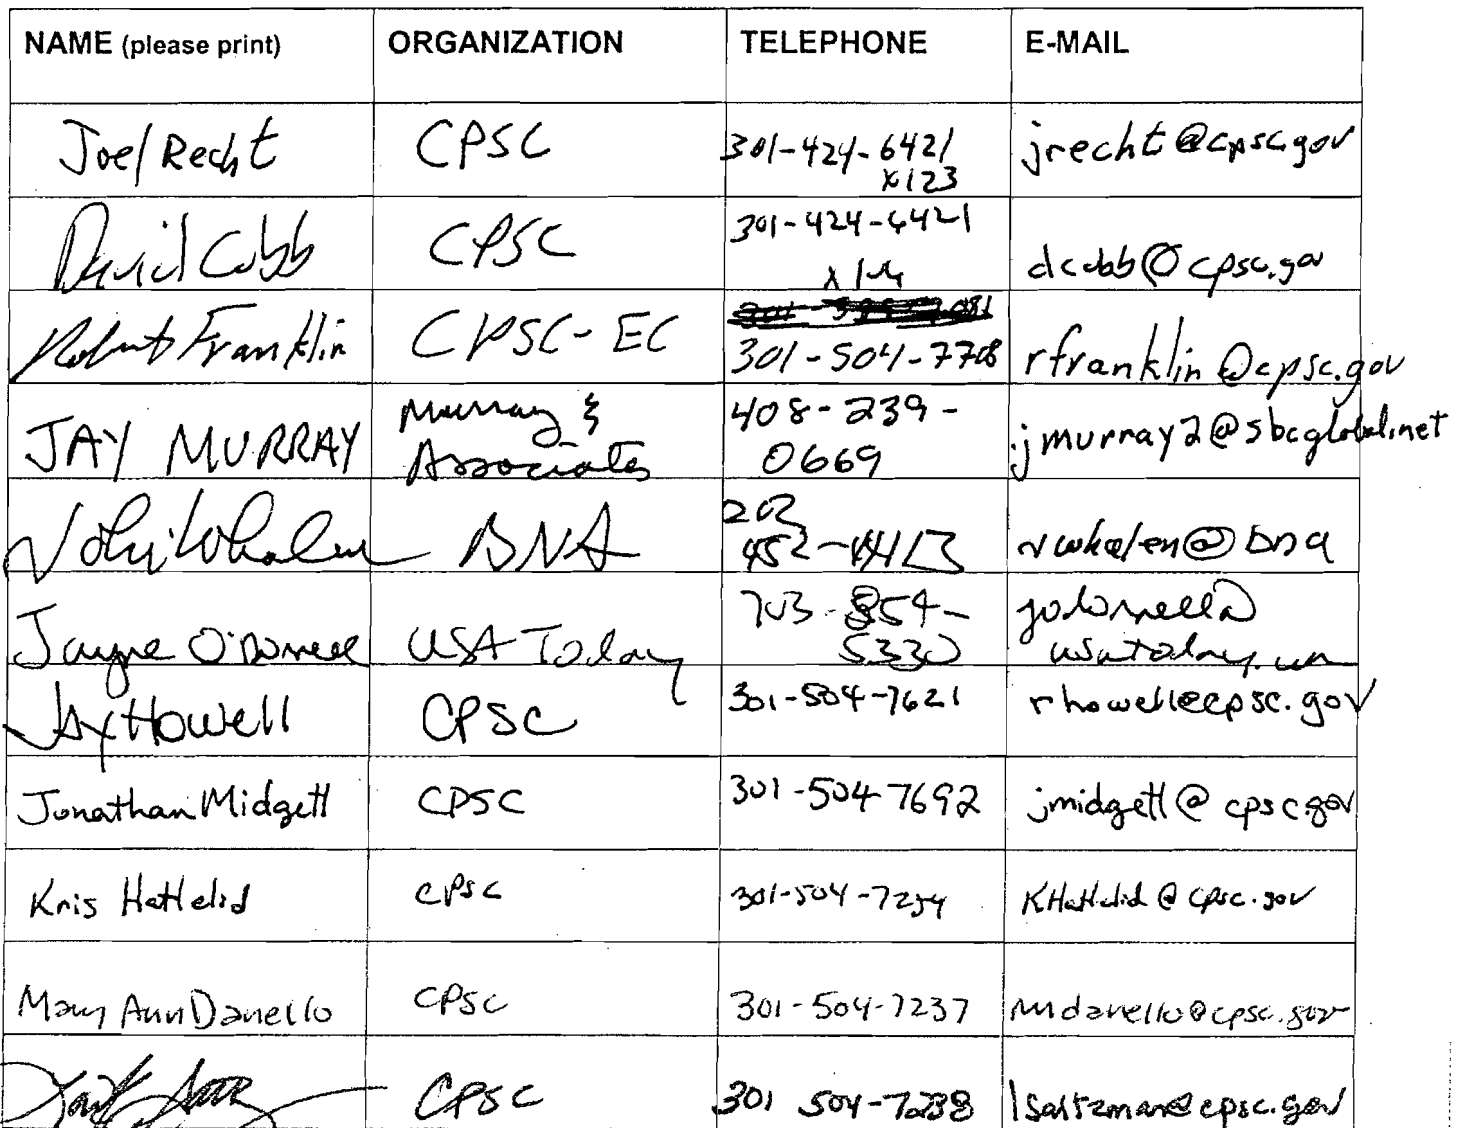 NAME (please print) ORGANIZATION TELEPHONE E-MAIL
Joel Recht CPSC 301-424-6421 jrecht@cpsc.gov
x123
David Cobb CPSC 301-424-6421 dcobb@cpsc.gov
Robert Franklin CPSC-EC 301-504-7708 rfranklin@cpsc.gov
JAY MURRAY Murray & 408-239- jmurray2@sbcglobal.net
Associates 0669
Whalen BNA 202 rwhalen@bna
452-
Jayne O'Donnell USA Today 703-854- jodonnell@
5330 usatoday.com
Jay Howell CPSC 301-504-7621 rhowell@cpsc.gov
Jonathan Midgett CPSC 301-504-7692 jmidgett@cpsc.gov
Kris Hatlelid CPSC 301-504-7254 KHatlelid@cpsc.gov
Mary Ann Danello CPSC 301-504-7237 mdanello@cpsc.gov
CPSC 301 504-7238 lsaltzman@cpsc.gov